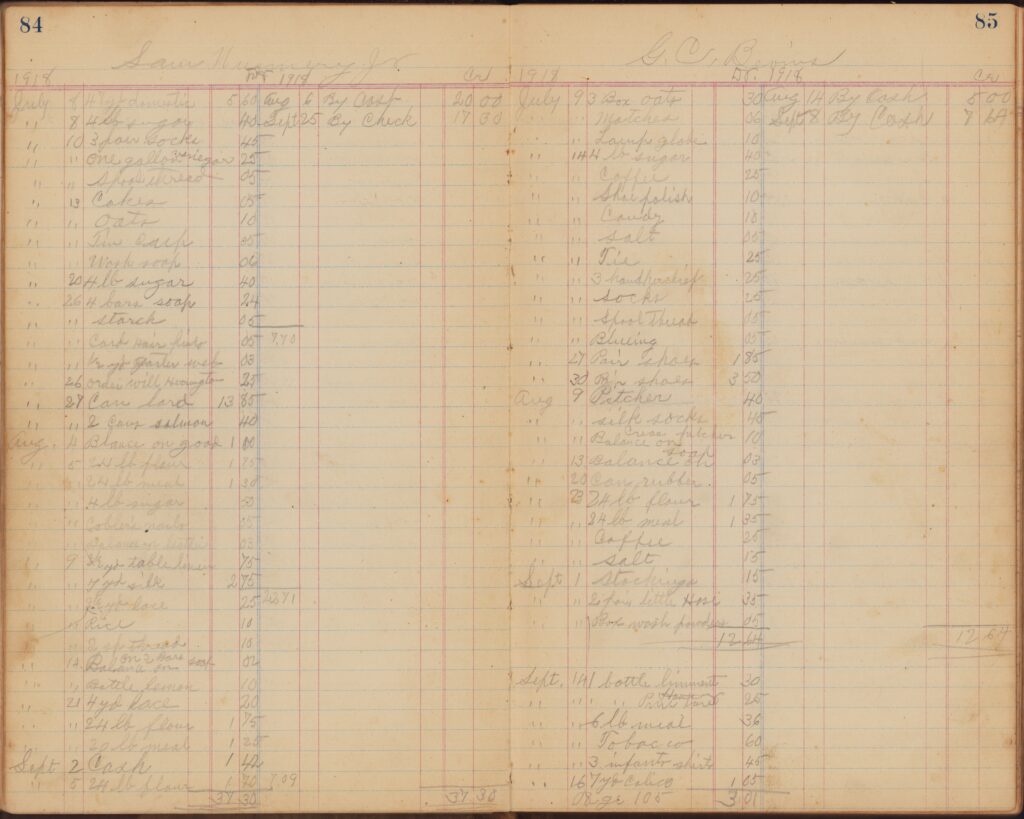 84
Sam Nunnery Jr
1918 Dr 1918 Cr
July 8 4 yd domestic 5 60 Aug 6 By Cash 20 00
" 8 4 lb sugar 40 Sept 25 By Check 17 30
" 10 3 pair socks 45
" " One gallon vinegar 25
" " Spool thread 05
" 13 Cakes 05
" " Oats 10
" " Tin Cup 05
" " Wash soap 06
" 20 4 lb sugar 40
" 26 4 bars soap 24
" " starch 05
" " Card Hair pins 05 7.70
" " yd garter web 03
" 26 order will 25
" 27 Can lard 13 85
" " 2 Cans salmon 40
Aug. 4 Blance on goods 1 00
" 5 24 lb flour 1 75
" " 24 lb meal 1 30
" " 4 lb sugar 50
" " Coblers nails 05
" " 03
" 9 yd table linen 75
" " yd silk 2 75
" " yd lace 25
" " Rice 10
" " 2 sp thread 10
" 14 Balance on 2 bars soap 02
" " Bottle lemon 10
" 21 4 yd lace 20
" " 24 lb flour 1 75
" " 20 lb meal 1 25
Sept 2 Cash 1 42
" 5 24 lb flour 1 70 7.09
37 30 37 30
85
G. C. Bivins
1918 Dr. 1918 Cr
July 9 3 Box Oats 30 Aug 14 By Cash 5 00
" " Matches 06 Sept 8 By Cash 7 64
" " Lamp globe 10
" 14 4 lb sugar 40
" " Coffee 25
" " Shoe polish 10
" " Candy 10
" " Salt 05
" " Tie 25
" " 3 handkerchief 25
" " Socks 25
" " Spool thread 05
" " Blueing 05
" 27 Pair shoes 1 85
" 30 Pr shoes 3 50
Aug 9 Pitcher 40
" " silk socks 45
" " Balance on Cream pitcher 10
" 13 Balance on soap 03
" 20 Can rubber 05
" 23 24 lb flour 1 75
" " 24 lb meal 1 35
" " Coffee 25
" " Salt 15
Sept 1 Stockings 15
" " 2 pair little Hose 35
" " Box wash powders 05
12 64 12 64
Sept. 14 1 bottle liniment 30
" " " " 25
" " 6 lb meal 36
" " Tobacco 60
" " 3 infants shirts 45
" 16 7 yd calico 1 05
Pge 105 3 01